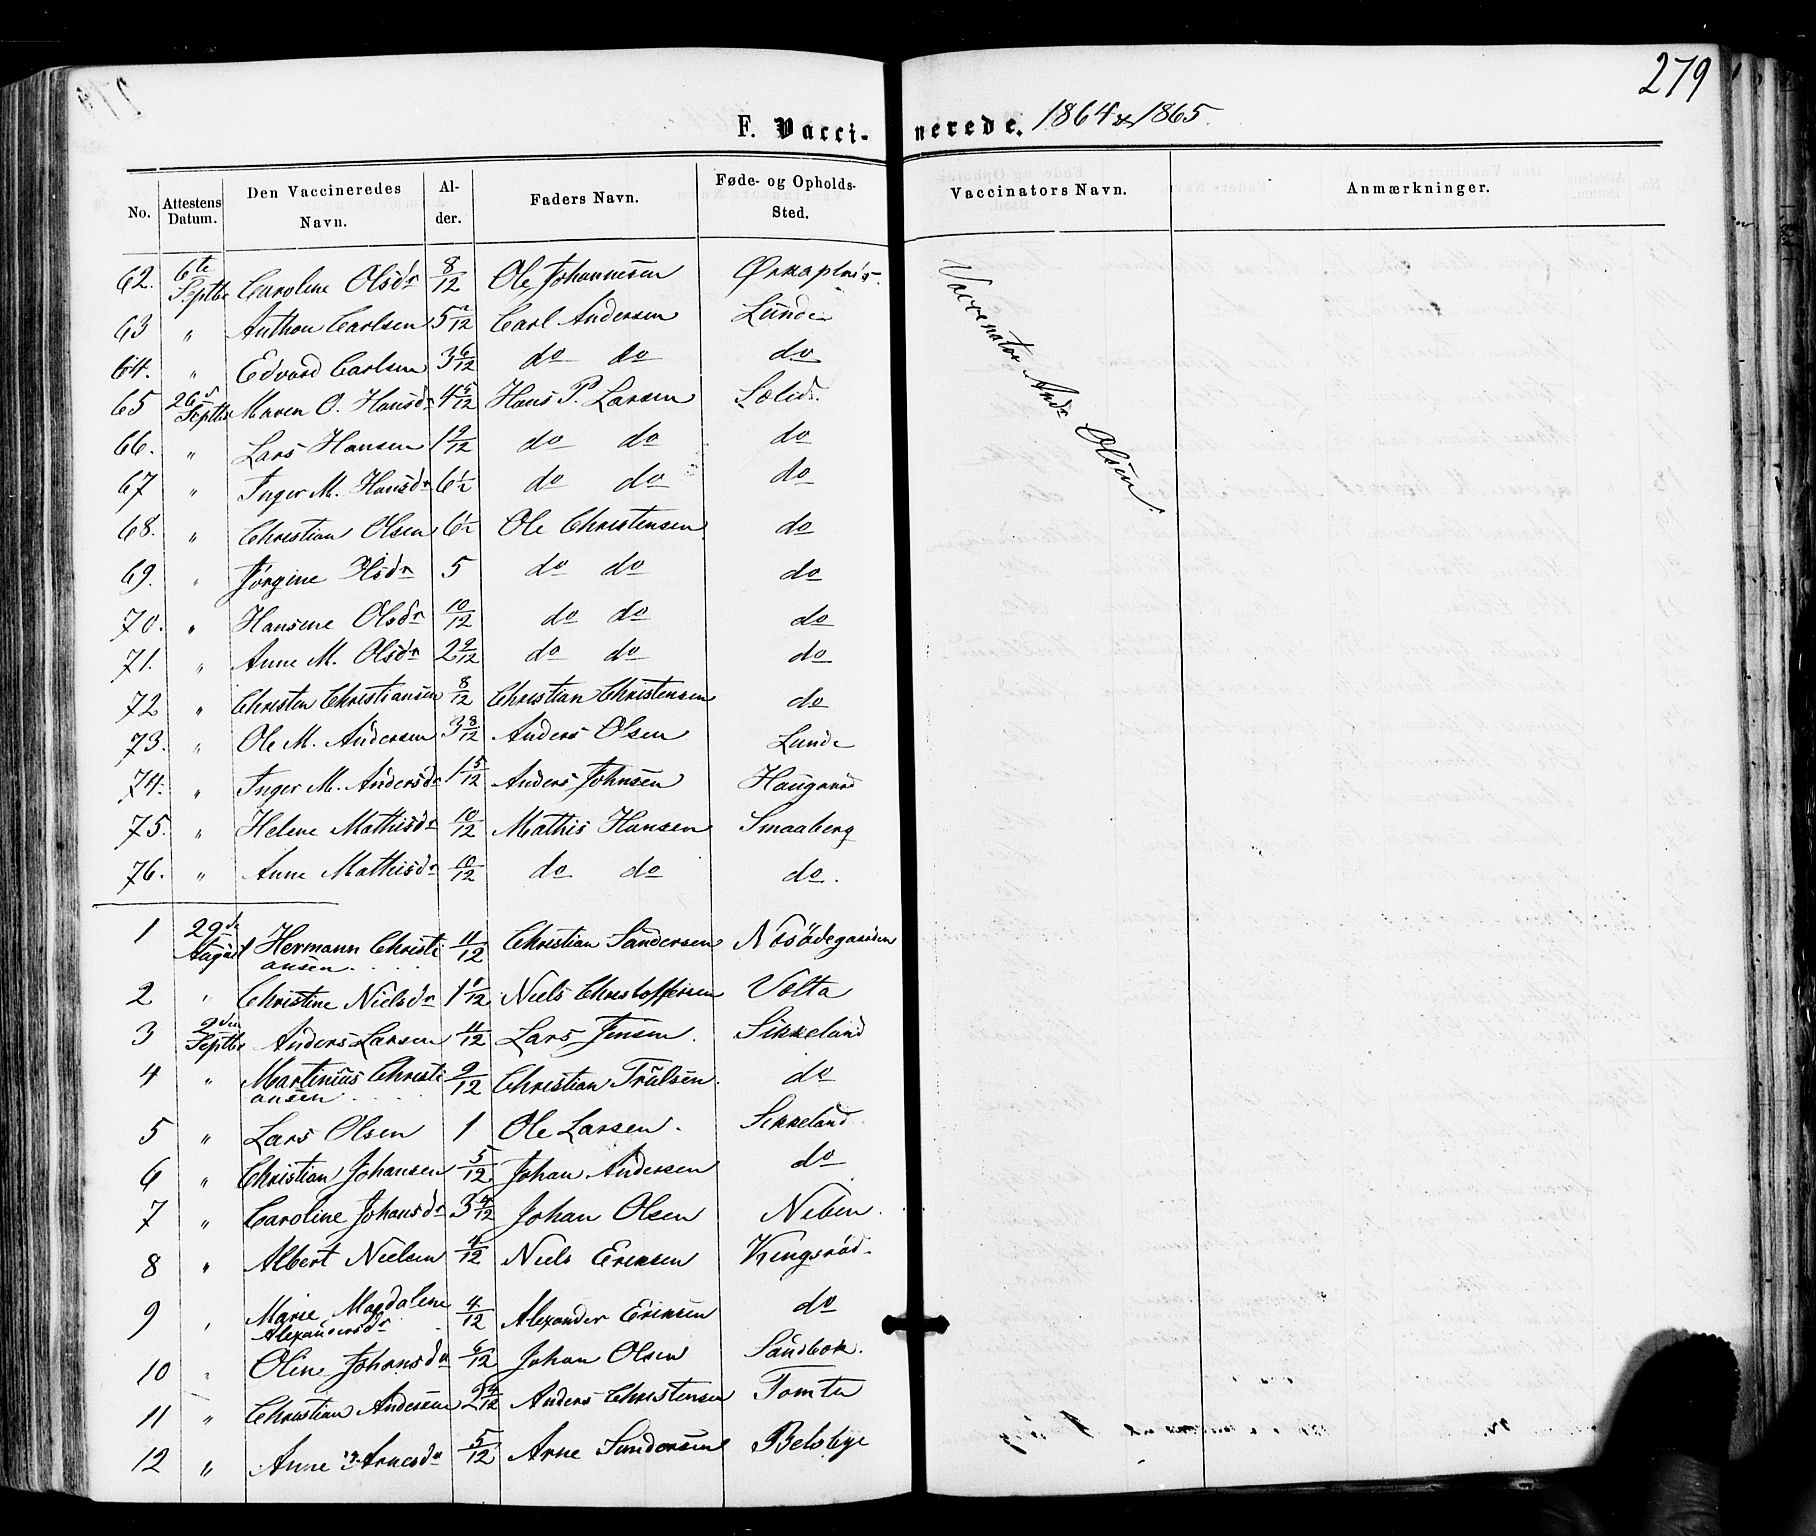 279
F. Vaccinerede. 1864 & 1865.
No. Attestens Datum. Den Vaccineredes Navn. Alder. Faders Navn. Føde- og Opholds-Sted. Vaccinators Navn. Anmærkninger.
62. 6te Septbr Caroline Olsdr 8/12 Ole Johannesen
63 " Anthon Carlsen 5 2/12 Carl Andersen Lunde
64. " Edvard Carlsen 3 6/12 do do do
65 26d Septbr Maren O. Hansdr 4 5/12 Hans P. Larsen
66. " Lars Hansen 1 9/12 do do do
67 " Inger M. Hansdr 6 1/2 do do do
68. " Christian Olsen 6 1/2 Ole Christensen do
69. " Jörgine Olsdr 5 do do do
70. " Hansine Olsdr 10/12 do do do
71. " Anne M. Olsdr 2 9/12 do do do
72 " Christen Christiansen 8/12 Christian Christensen do
73. " Ole M. Andersen 3 8/12 Anders Olsen Lunde
74. " Inger M. Andersdr 1 5/12 Anders Johnsen Haugaard
75. " Helene Mathisdr 10/12 Mathis Hansen Smaaberg
76. " Anne Mathisdr 10/12 do do do.
1 29de August Hermann Christiansen 11/12 Christian Sandersen Nosödegaarden
2 " Christine Nielsdr 1 1/12 Niels Christoffersen Volta
3 2den Septbr Anders Larsen 11/12 Lars Jensen. Sikkeland
4 " Martinius Christiansen 9/12 Christian Trulsen. do
5 " Lars Olsen 1 Ole Larsen. Sikkeland
6 " Christian Johansen 5/12 Johan Andersen do
7 " Caroline Johansdr 3 4/12 Johan Olsen Neben.
8 " Albert Nielsen 4/12 Niels Eriksen Kengsröd
9 " Marie Magdalene Alexandersdr 4/12 Alexander Eriksen do
10 " Oline Johansdr 6/12 Johan Olsen Sandbok.
11 " Christian Andersen 2 4/12 Anders Christensen Tomter
12 " Anne Arnesdr 5/12 Arne Sandersen Belsbye
Vaccinator Andr Olsen.